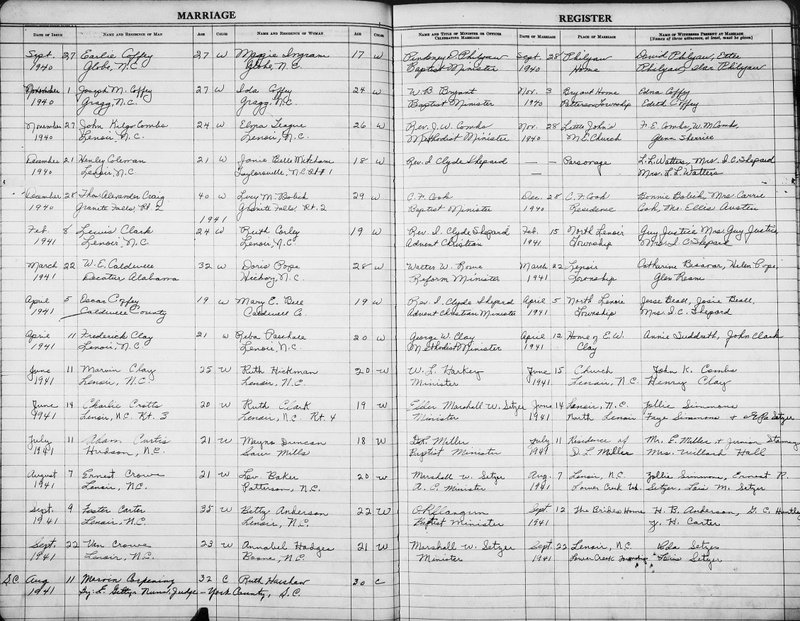 MARRIAGE REGISTER
DATE OF ISSUE NAME AND RESIDENCE OF MAN AGE COLOR NAME AND RESIDENCE OF WOMAN AGE COLOR NAME AND TITLE OF MINISTER OR OFFICER CELEBRATING MARRIAGE DATE OF MARRIAGE PLACE OF MARRIAGE NAME OF WITNESSES PRESENT AT MARRIAGE
Sept. 27 Earlie Coffey 27 W Ingram 17 W Philyaw Sept. 28 Philyaw David Philyaw,
1940 Globe, N.C. Globe, N.C. Baptist Minister 1940 Home Philyaw, Philyaw
November 1 Joseph M. Coffey 27 W Ida Coffey 24 W W. B. Bryant Nov. 3 Bryant Home Edna Coffey
1940 Gragg, N.C. Gragg, N.C. Baptist Minister 1940 Patterson Township Edith Coffey
November 27 John Combs 24 W Teague 26 W Rev. J. W. Combs Nov. 28 Little John's F. E. Combs, W. M. Combs,
1940 Lenoir, N.C. Lenoir, N.C. Methodist Minister 1940 M. E. Church Glenn
December 21 Henley Coleman 21 W Janie Belle Mitcham 18 W Rev. I Clyde Shepard — — Parsonage L. L. Watters, Mrs. I. C. Shepard
1940 Lenoir, N.C. Taylorsville, N.C. Rt 1 Mrs. L. L. Watters
December 28 Thos. Alexander Craig 40 W Lucy M. Bolick 29 W C. F. Cook Dec. 28 C. F. Cook Bonnie Bolick, Mrs. Carrie
1940 Granite Falls, Rt. 2 Granite Falls, Rt. 2 Baptist Minister 1940 Residence Cook, Mr. Ellis Austin
1941
Feb. 8 Lewis Clark 24 W Ruth Corley 19 W Rev. I Clyde Shepard Feb. 15 North Lenoir Guy Justice, Mrs. Guy Justice,
1941 Lenoir, N.C. Lenoir, N.C. Advent Christian 1941 Township Mrs. I. C. Shepard
March 22 W. E. Caldwell 32 W Doris Pope 28 W Walter W. Rowe March 22 Lenoir Catherine Helen Pope,
1941 Decatur Alabama Hickory, N.C. Reform Minister 1941 Township Glen
April 5 Oscar Coffey 19 W Mary E. Bell 19 W Rev I. Clyde Shepard April 5 North Lenoir Jesse Beall, Josie Beall,
1941 Caldwell County Caldwell Co. Advent Christian Minister 1941 Township Mrs. I. C. Shepard
April 11 Frederick Clay 21 W Reba Paschall 20 W George W. Clay April 12 Home of E. W. Annie Suddreth, John Clark
1941 Lenoir, N.C. Lenoir, N.C. Methodist Minister 1941 Clay
June 11 Marvin Clay 25 W Ruth Hickman 20 W W. L. Harkey June 15 Church John K. Combs
1941 Lenoir, N.C. Lenoir, N.C. Minister 1941 Lenoir, N.C. Henry Clay
June 14 Charlie Crotts 20 W Ruth Clark 19 W Elder Marshall W. Setzer June 14 Lenoir, N.C. Zollie Simmons
1941 Lenoir, N.C. Rt. 3 Lenoir, N.C. Rt. 4 Minister 1941 North Lenoir Faye Simmons & Setzer
July 11 Adam Curtis 21 W Mayro Duncan 18 W D. L. Miller July 11 Residence of Mr. E. Miller & Junior
1941 Hudson, N.C. Saw Mills Baptist Minister 1941 D L Miller Mrs. Willard Hall
August 7 Ernest Crowe 21 W Baker 20 W Marshall W. Setzer Aug. 7 Lenoir, N.C. Zollie Simmons, Ernest R.
1941 Lenoir, N.C. Patterson, N.C. A. C. Minister 1941 Lower Creek Setzer, M. Setzer
Sept. 9 Carter 35 W Betty Anderson 22 W Sept 12 The Brides Home H. B. Anderson, G. C.
1941 Lenoir, N.C. Lenoir, N.C. Baptist Minister 1941 H. Carter
Sept. 22 Van Crowe 23 W Annabel Hodges 21 W Marshall W. Setzer Sept. 22 Lenoir, N.C. Setzer
1941 Lenoir, N.C. Boone, N.C. Minister 1941 Lower Creek Township Setzer
S.C. Aug 11 Corpening 32 C Ruth Harshaw 20 C
1941 By: E. Gettys Nunn, Judge — York County, S.C.